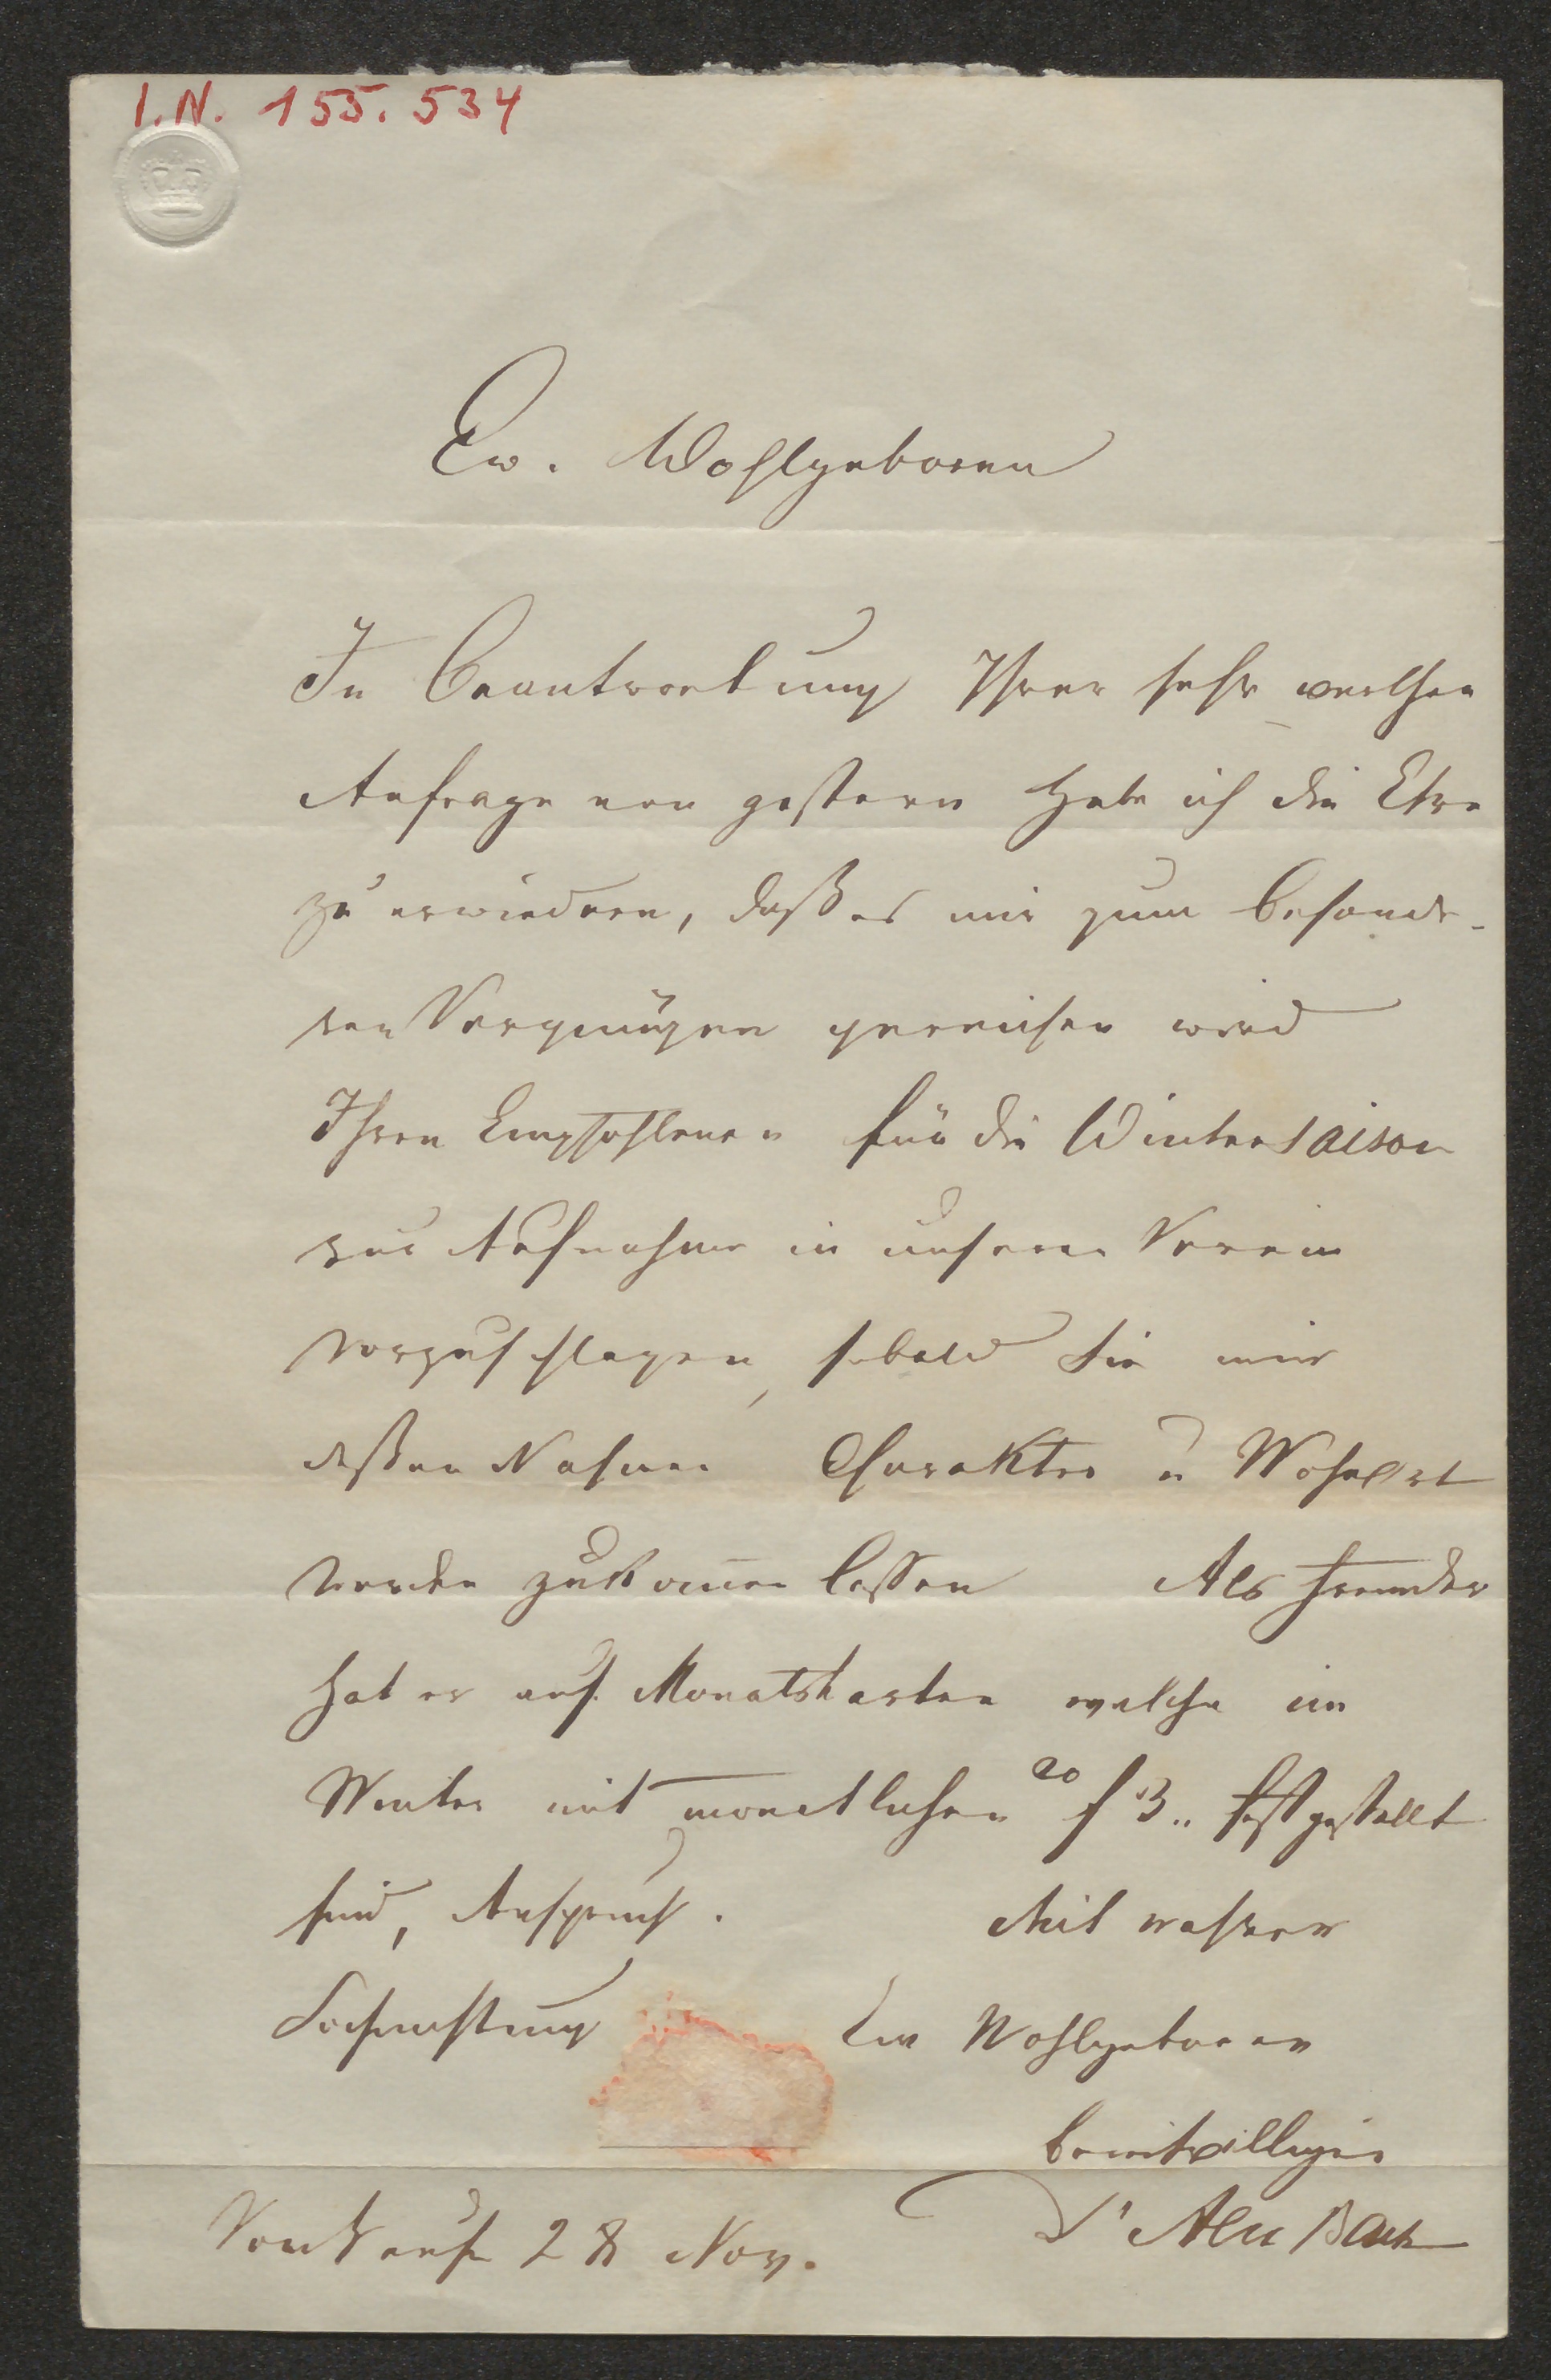 I.N. 155.534
Ew. Wohlgeboren
In Beantwortung Ihrer sehr werthen
Anfrage von gestern habe ich die Ehre
zu erwiedern, daß es mir zum besonde-
ren Vergnügen gereichen wird
Ihren Empfohlenen für die Wintersaison
zur Aufnahme in unseren Verein
vorzuschlagen, sobald Sie mir
deßen Nahmen Charakter u Wohnort
werden zukom̅en lassen Als Fremder
hat er auf Monatskarten welche im
Winter mit monatlichen f 3.. festgestellt
sind, Anspruch. Mit wahrer
Hochachtung Euer Wohlgeboren
bereitwilliger
Dr Alex Bach
28 Nov.